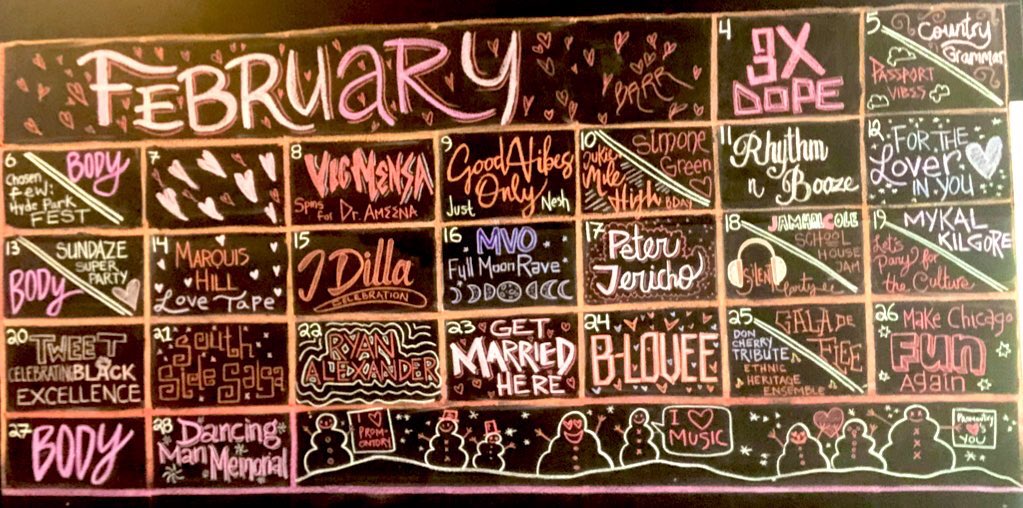 FEBRUARY
BRRR
4
3X
DOPE
5
Country
Grammar
PASSPORT
VIBES
6
BODY
Chosen
few:
Hyde Park
FEST
7
8
VIC MENSA
Spins
for Dr. AMEENA
9
Good Vibes
Only
Just Nesh
10
Simone
Green
BDAY
Mile
High
11
Rhythm
n Booze
12
FOR THE
Lover
IN YOU
13
SUNDAZE
SUPER
PARTY
BODY
14
MARQUIS
HILL
Love Tape
15
J Dilla
CELEBRATION
16
MVO
Full Moon Rave
17
Peter
Jericho
18
JAMHALCOLE
SCHOOL
HOUSE
JAM
SILENT
19
MYKAL
KILGORE
Let's
Party for
the Culture
20
TWEET
CELEBRATING BLACK
EXCELLENCE
21
South
Side Salsa
22
RYAN
ALEXANDER
23
GET
MARRIED
HERE
24
B-LOVEE
25
GALA DE
FLEE
DON
CHERRY
TRIBUTE
ETHNIC
HERITAGE
ENSEMBLE
26
Make Chicago
Fun
Again
27
BODY
28
Dancing
Man Memorial
I
PROM-
ONTORY
I
MUSIC
Promontory
YOU